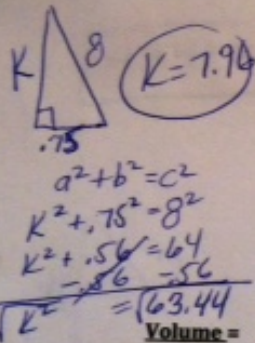 K 8 K=7.96
.75
a²+b²=c²
K²+.75²=8²
K²+.56=64
-.56 -.56
√K² =√63.44
Volume =